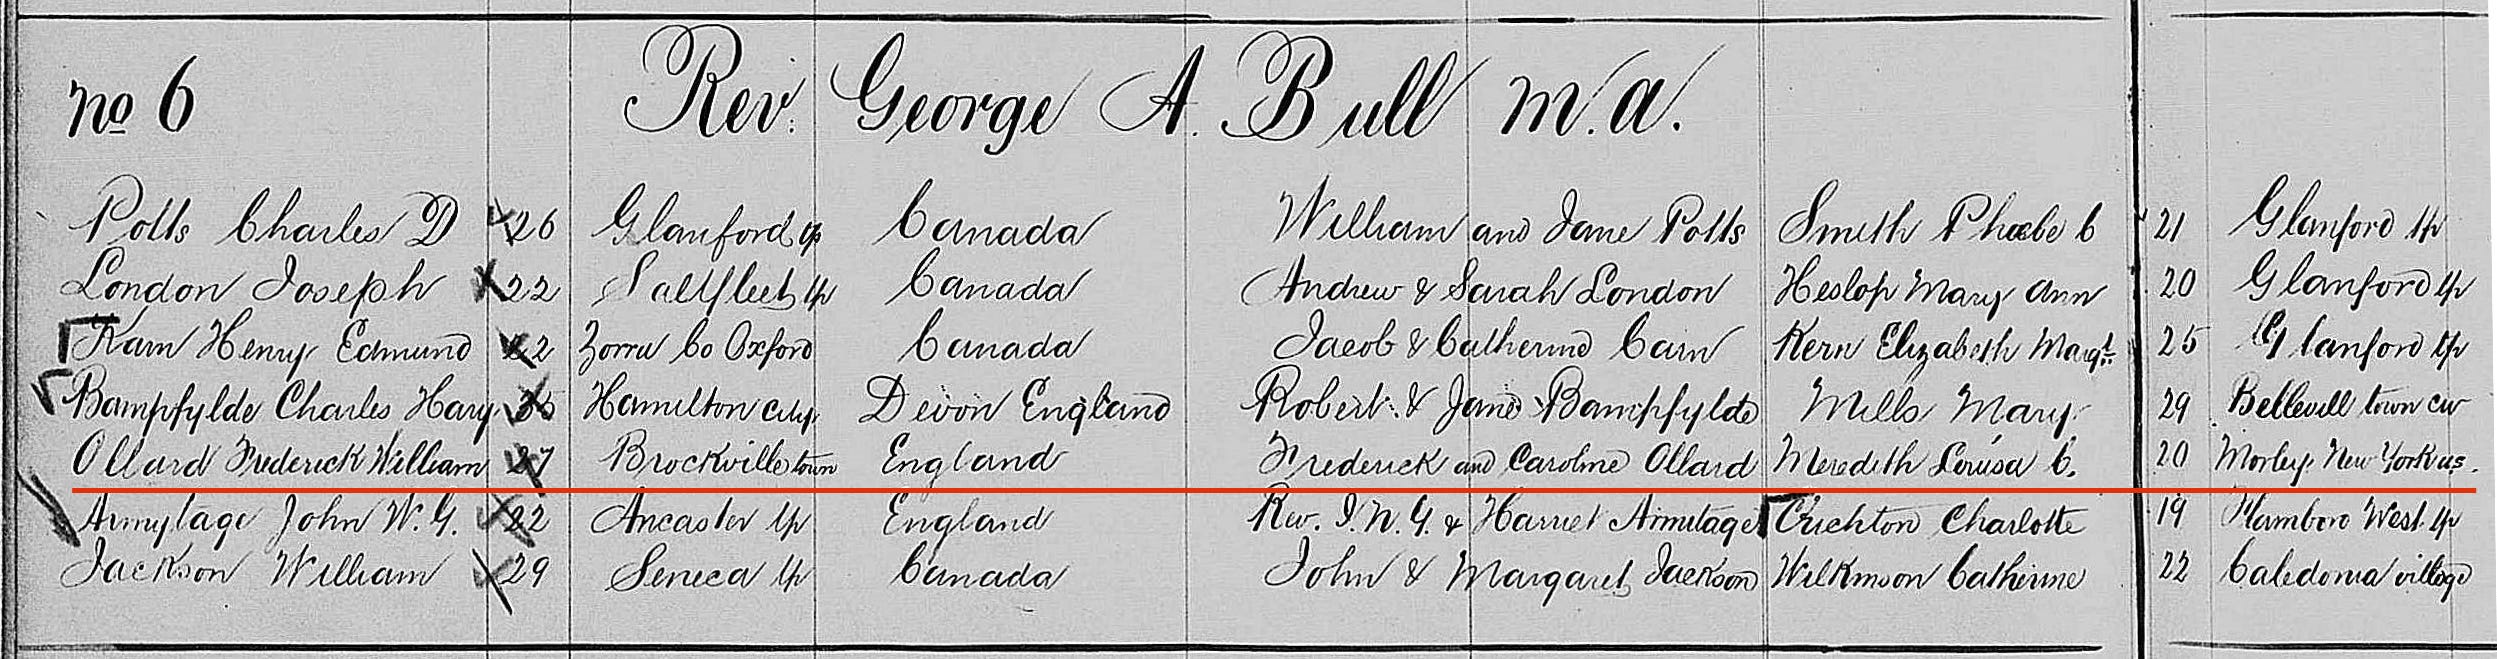 No 6 Rev. George A. Bull M.A.
Potts Charles D 26 Glanford tp Canada William and Jane Potts Smith Phoebe C 21 Glanford tp
London Joseph 22 Saltfleet tp Canada Andrew & Sarah London Heslop Mary Ann 20 Glanford tp
Karn Henry Edmund 22 Zorra Co Oxford Canada Jacob & Catherine Carn Kern Elizabeth Margt. 25 Glanford tp
Bampfylde Charles Hary 35 Hamilton City Devon England Robert & Jane Bampfylde Mills Mary 29 Bellevill town CW
Ollard Frederick William 27 Brockville town England Frederick and Caroline Ollard Meredith Lerusa C. 20 Morley New York us.
Armytage John W. G. 22 Ancaster tp England Rev. I. N. G. & Harriet Armitage Crichton Charlotte 19 Flamboro West tp
Jackson William 29 Seneca tp Canada John & Margaret Jackson Wilkinson Catherine 22 Caledonia village